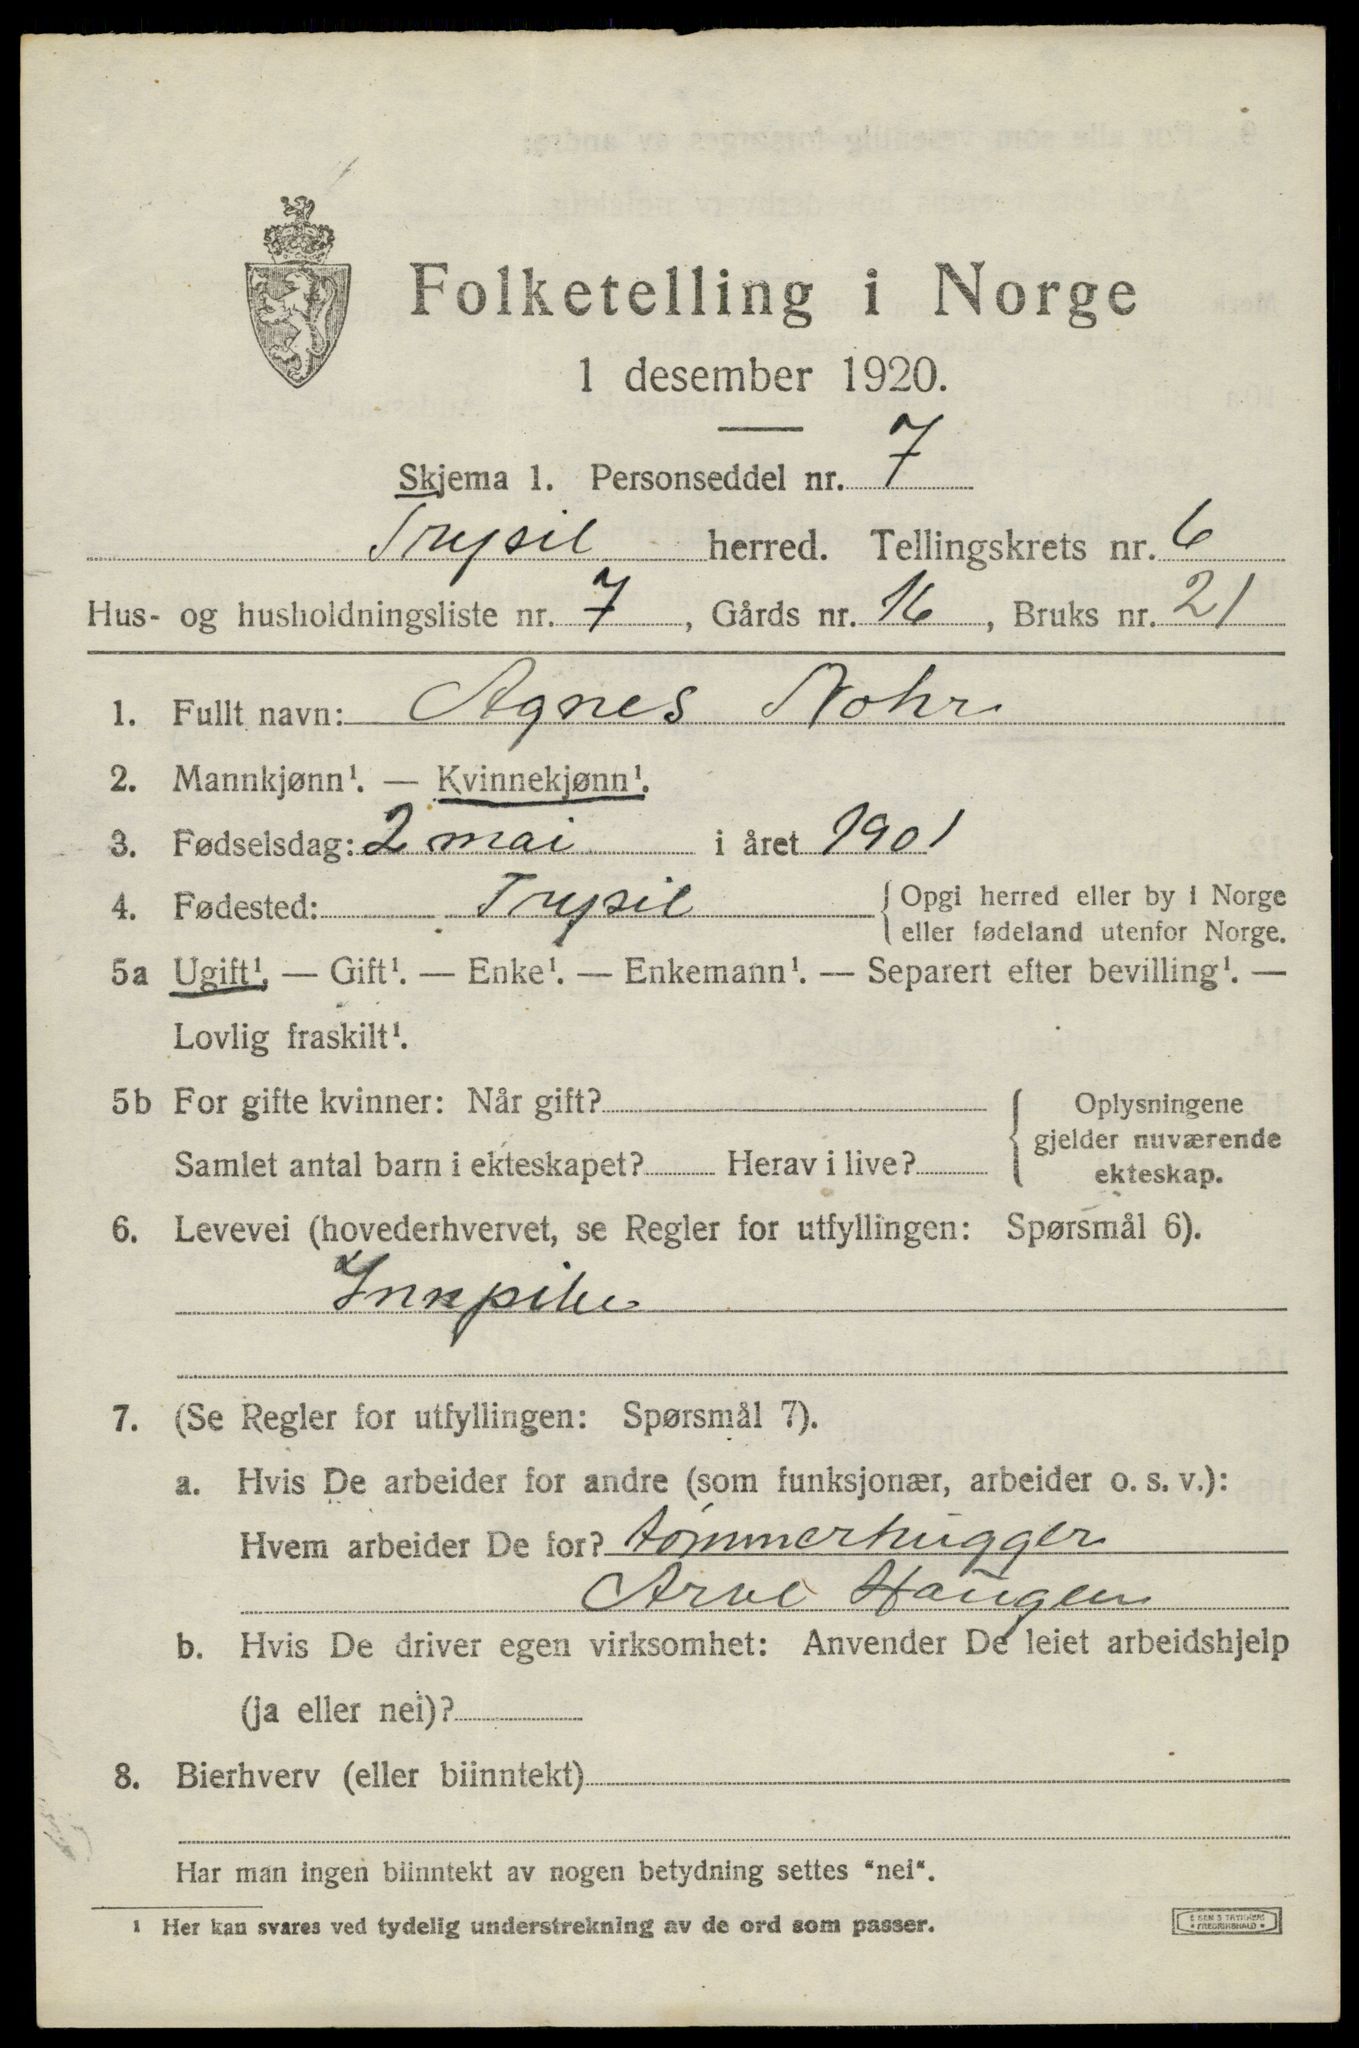 Folketelling i Norge
1 desember 1920.
Skjema 1. Personseddel nr. 7
Trysil herred. Tellingskrets nr. 6
Hus- og husholdningsliste nr. 7, Gårds nr. 16, Bruks nr. 21
1. Fullt navn: Agnes Nohr
2. Mannkjønn¹. — Kvinnekjønn¹.
3. Fødselsdag: 2 mai i året 1901
4. Fødested: Trysil { Opgi herred eller by i Norge
eller fødeland utenfor Norge.
5a Ugift¹. — Gift¹. — Enke¹. — Enkemann¹. — Separert efter bevilling¹. —
Lovlig fraskilt¹.
5b For gifte kvinner: Når gift? { Oplysningene
gjelder nuværende
Samlet antal barn i ekteskapet? Herav i live? ekteskap.
6. Levevei (hovederhvervet, se Regler for utfyllingen: Spørsmål 6).
Innpike
7. (Se Regler for utfyllingen: Spørsmål 7).
a. Hvis De arbeider for andre (som funksjonær, arbeider o. s. v.):
Hvem arbeider De for? tømmerhugger
Arve Haugen
b. Hvis De driver egen virksomhet: Anvender De leiet arbeidshjelp
(ja eller nei)?
8. Bierhverv (eller biinntekt)
Har man ingen biinntekt av nogen betydning settes "nei".
¹ Her kan svares ved tydelig understrekning av de ord som passer.